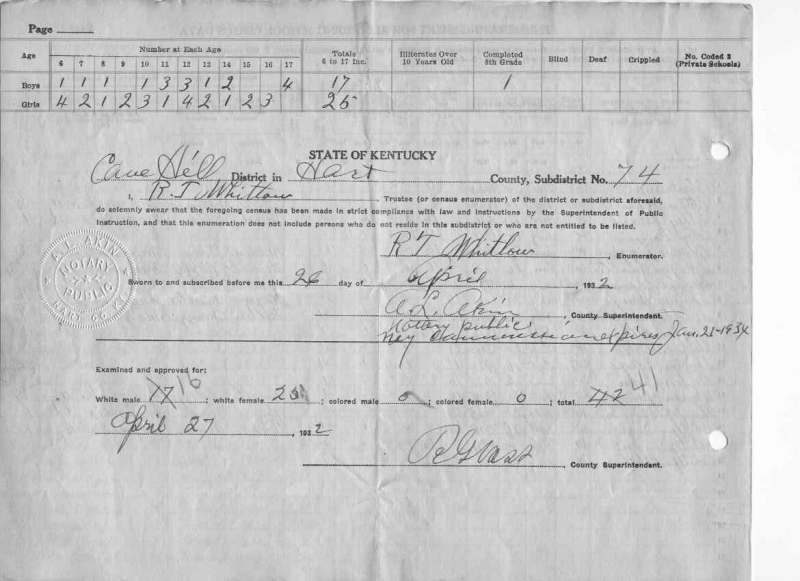 Page
Age Number at Each Age Totals 6 to 17 Inc. Illiterates Over 10 Years Old Completed 8th Grade Blind Deaf Crippled No. Coded 2 (Private Schools)
6 7 8 9 10 11 12 13 14 15 16 17
Boys 1 1 1 1 3 3 1 2 4 17 1
Girls 4 2 1 2 3 1 4 2 1 2 3 25
STATE OF KENTUCKY
Cave Hill District in Hart County, Subdistrict No. 74
I, R.T. Whitlow, Trustee (or census enumerator) of the district or subdistrict aforesaid,
do solemnly swear that the foregoing census has been made in strict compliance with law and instructions by the Superintendent of Public
Instruction, and that this enumeration does not include persons who do not reside in this subdistrict or who are not entitled to be listed.
R T Whitlow, Enumerator.
A.L. AKIN
NOTARY
PUBLIC
HART CO. KY.
Sworn to and subscribed before me this 26 day of April, 1932
A. L. Akin, County Superintendent.
Nottery public
my commission expires Jan. 21-1934
Examined and approved for:
White male 17 16; white female 25; colored male 0; colored female 0; total 42 41
April 27, 1932
County Superintendent.